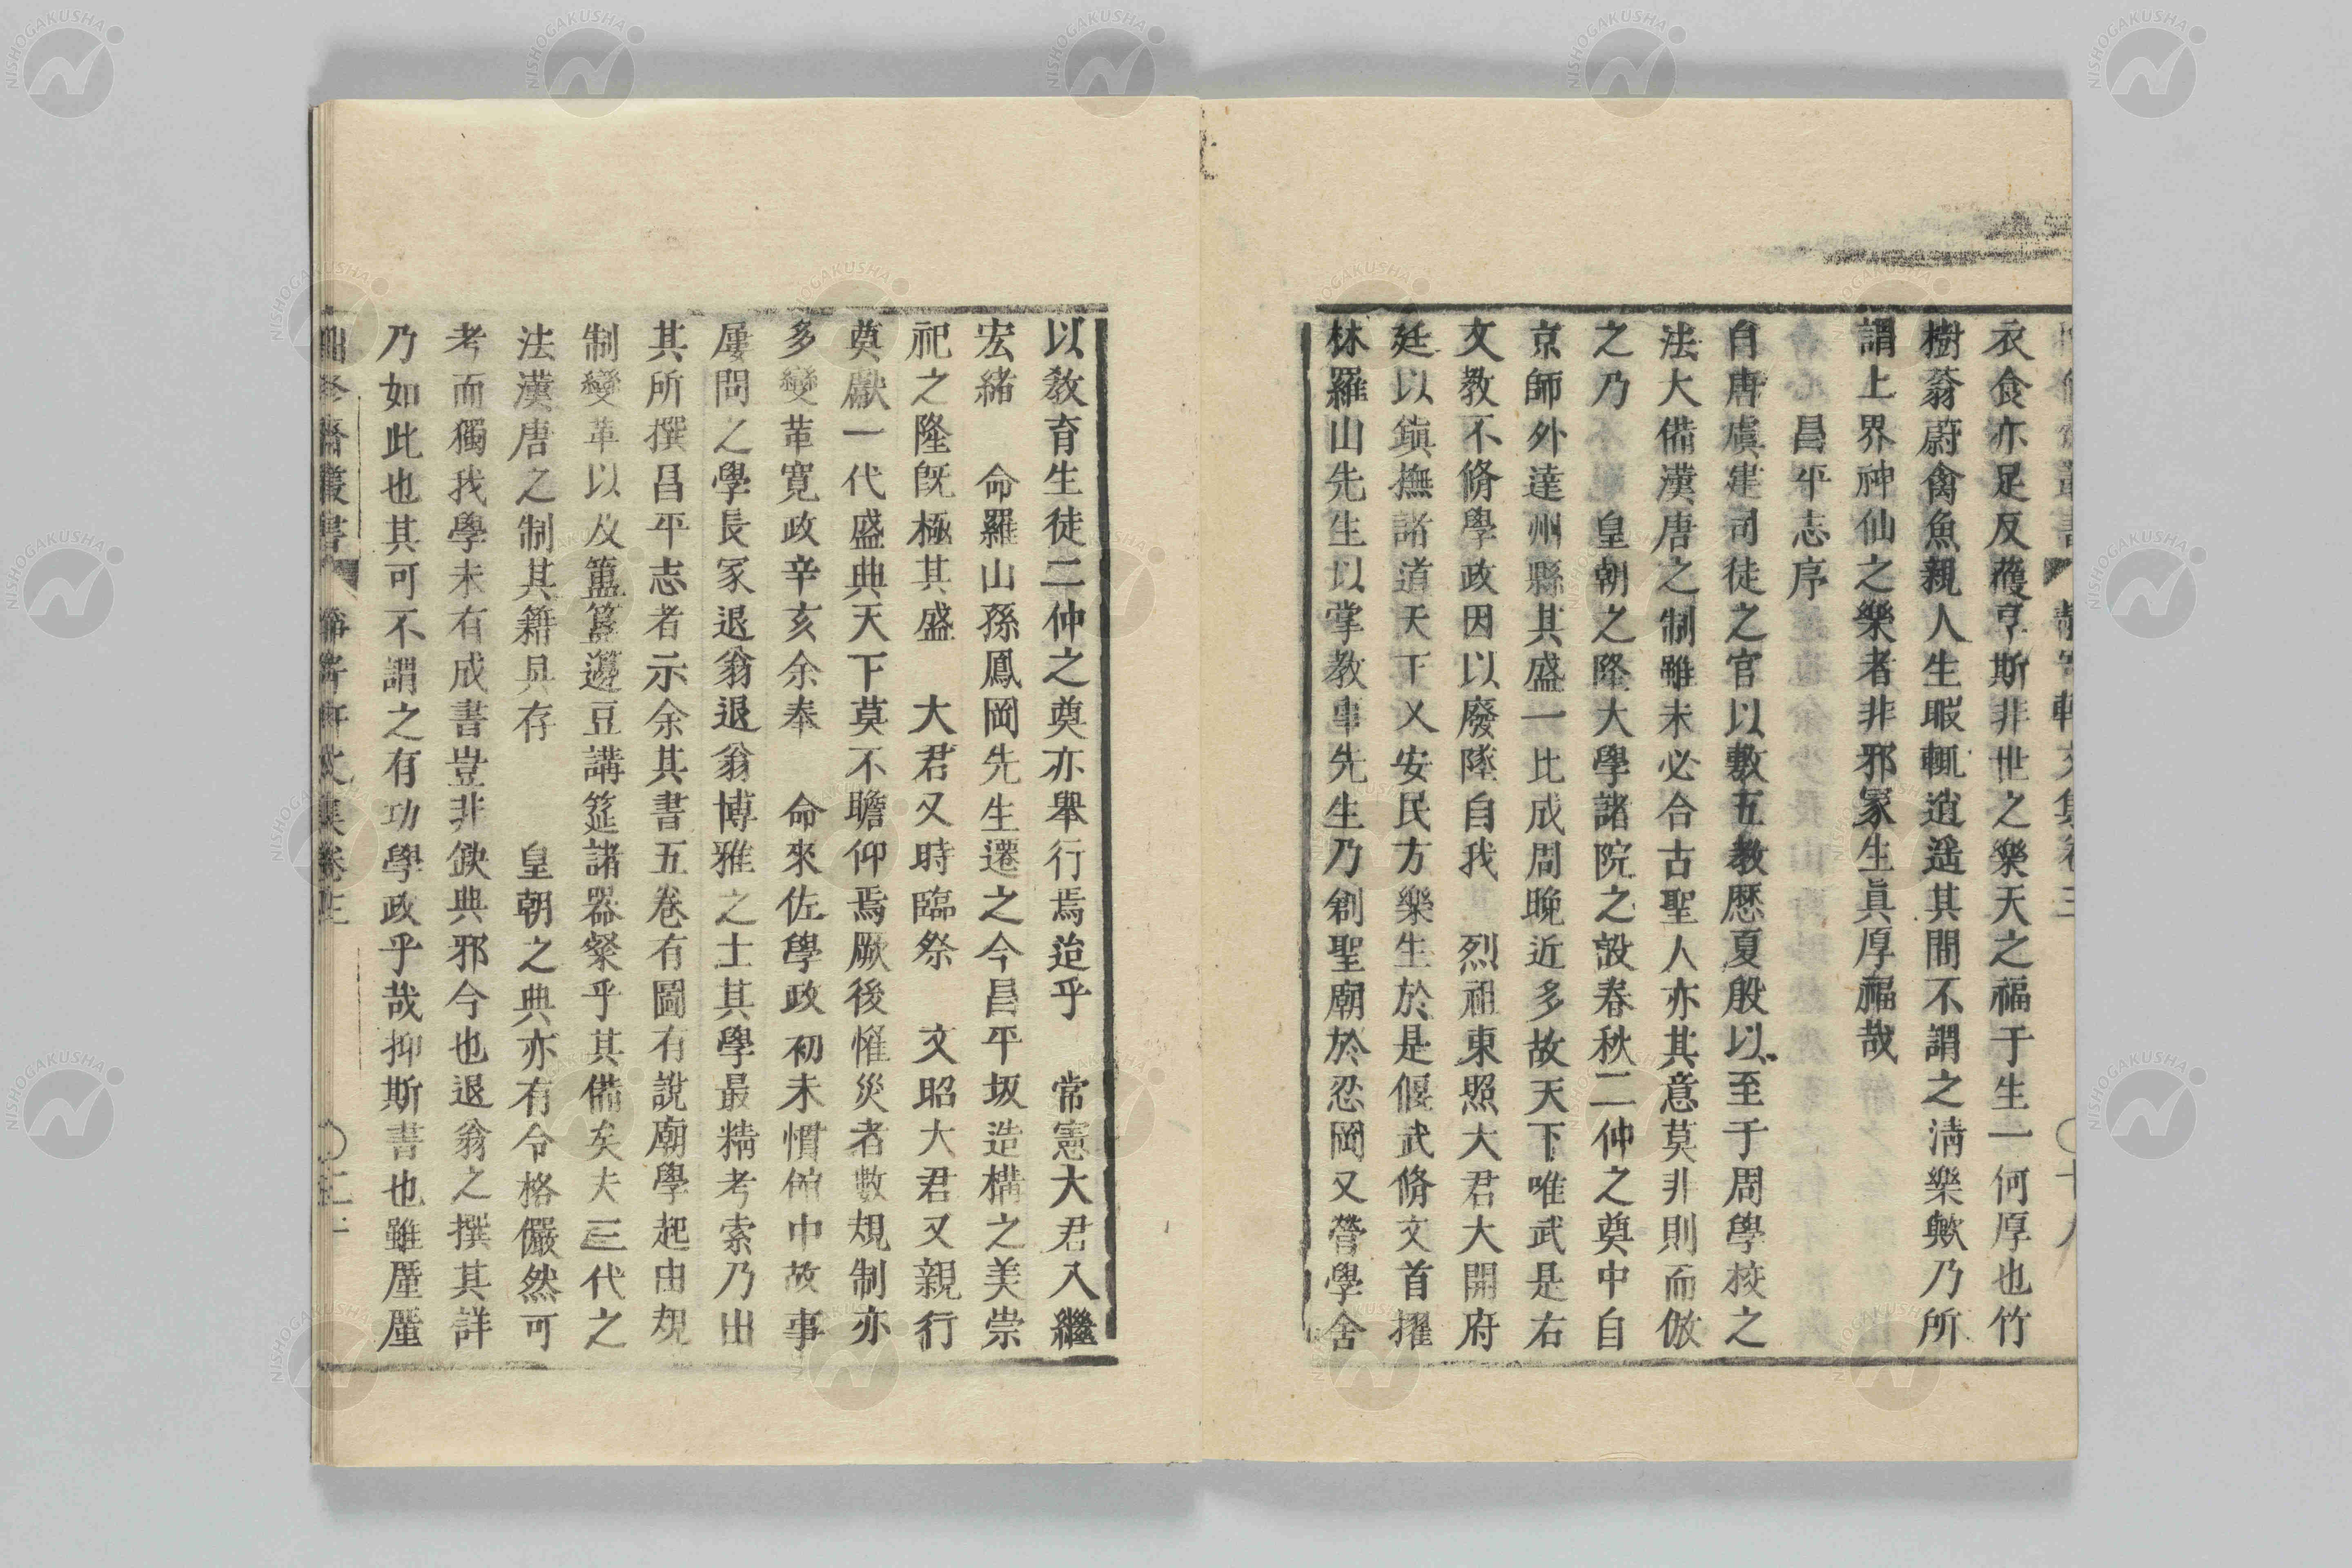 衣食亦足反覆享斯非世之樂天之福于生一何厚也竹
樹蓊蔚禽魚親人生暇輒逍遥其間不謂之淸樂歟乃所
謂上界神仙之樂者非邪冢生眞厚福哉
昌平志序
自唐虞建司徒之官以敷五教歷夏殷以至于周學校之
法大備漢唐之制雖未必合古聖人亦其意莫非則而倣
之乃　皇朝之隆大學諸院之設春秋二仲之奠中自
京師外達州縣其盛一比成周晚近多故天下唯武是右
文教不脩學政因以廢墜自我　烈祖東照大君大開府
廷以鎭撫諸道天下乂安民方樂生於是偃武脩文首擢
林羅山先生以掌教事先生乃創聖廟於忍岡又營學舍
以教育生徒二仲之奠亦舉行焉迨乎　常憲大君入繼
宏緒　命羅山孫鳳岡先生遷之今昌平坂造構之美崇
祀之隆既極其盛　大君又時臨祭　文昭大君又親行
奠獻一代盛典天下莫不瞻仰焉厥後惟災者數規制亦
多變革寬政辛亥余奉　命來佐學政初未慣館中故事
屢問之學長冢退翁退翁博雅之士其學最精考索乃出
其所撰昌平志者示余其書五卷有圖有說廟學起由規
制變革以及簠簋籩豆講筵諸器粲乎其備矣夫三代之
法漢唐之制其籍具存　皇朝之典亦有令格儼然可
考而獨我學未有成書豈非缺典邪今也退翁之撰其詳
乃如此也其可不謂之有功學政乎哉抑斯書也雖厪厪
齋叢書　靜寄軒文集卷三
NISHOGAKUSHA